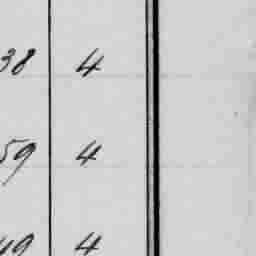 38 4
59 4
49 4